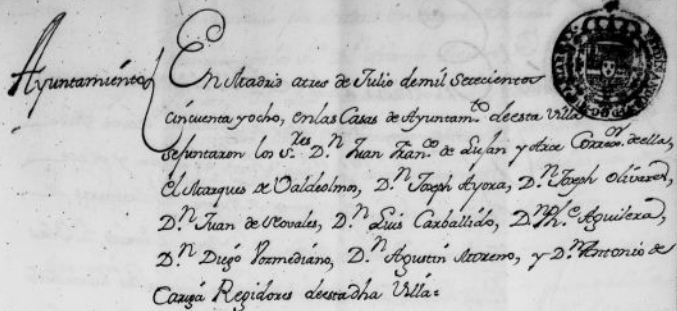 Ayuntamiento
En Madrid a tres de Julio de mil Setecientos
cincuenta y ocho, en las Casas de Ayuntam.to de esta Villa
se juntaron los S.res D.n Juan Fran.co de Lujan y Arze Correx.or de ella,
el Marques de Valdeolmos, D.n Joseph Ayora, D.n Joseph Olivares,
D.n Juan de Novales, D.n Luis Carballido, D.n Ph.e Aguilera,
D.n Diego Vozmediano, D.n Agustin Moreno, y D.n Antonio de
Regidores de esta dha Villa=